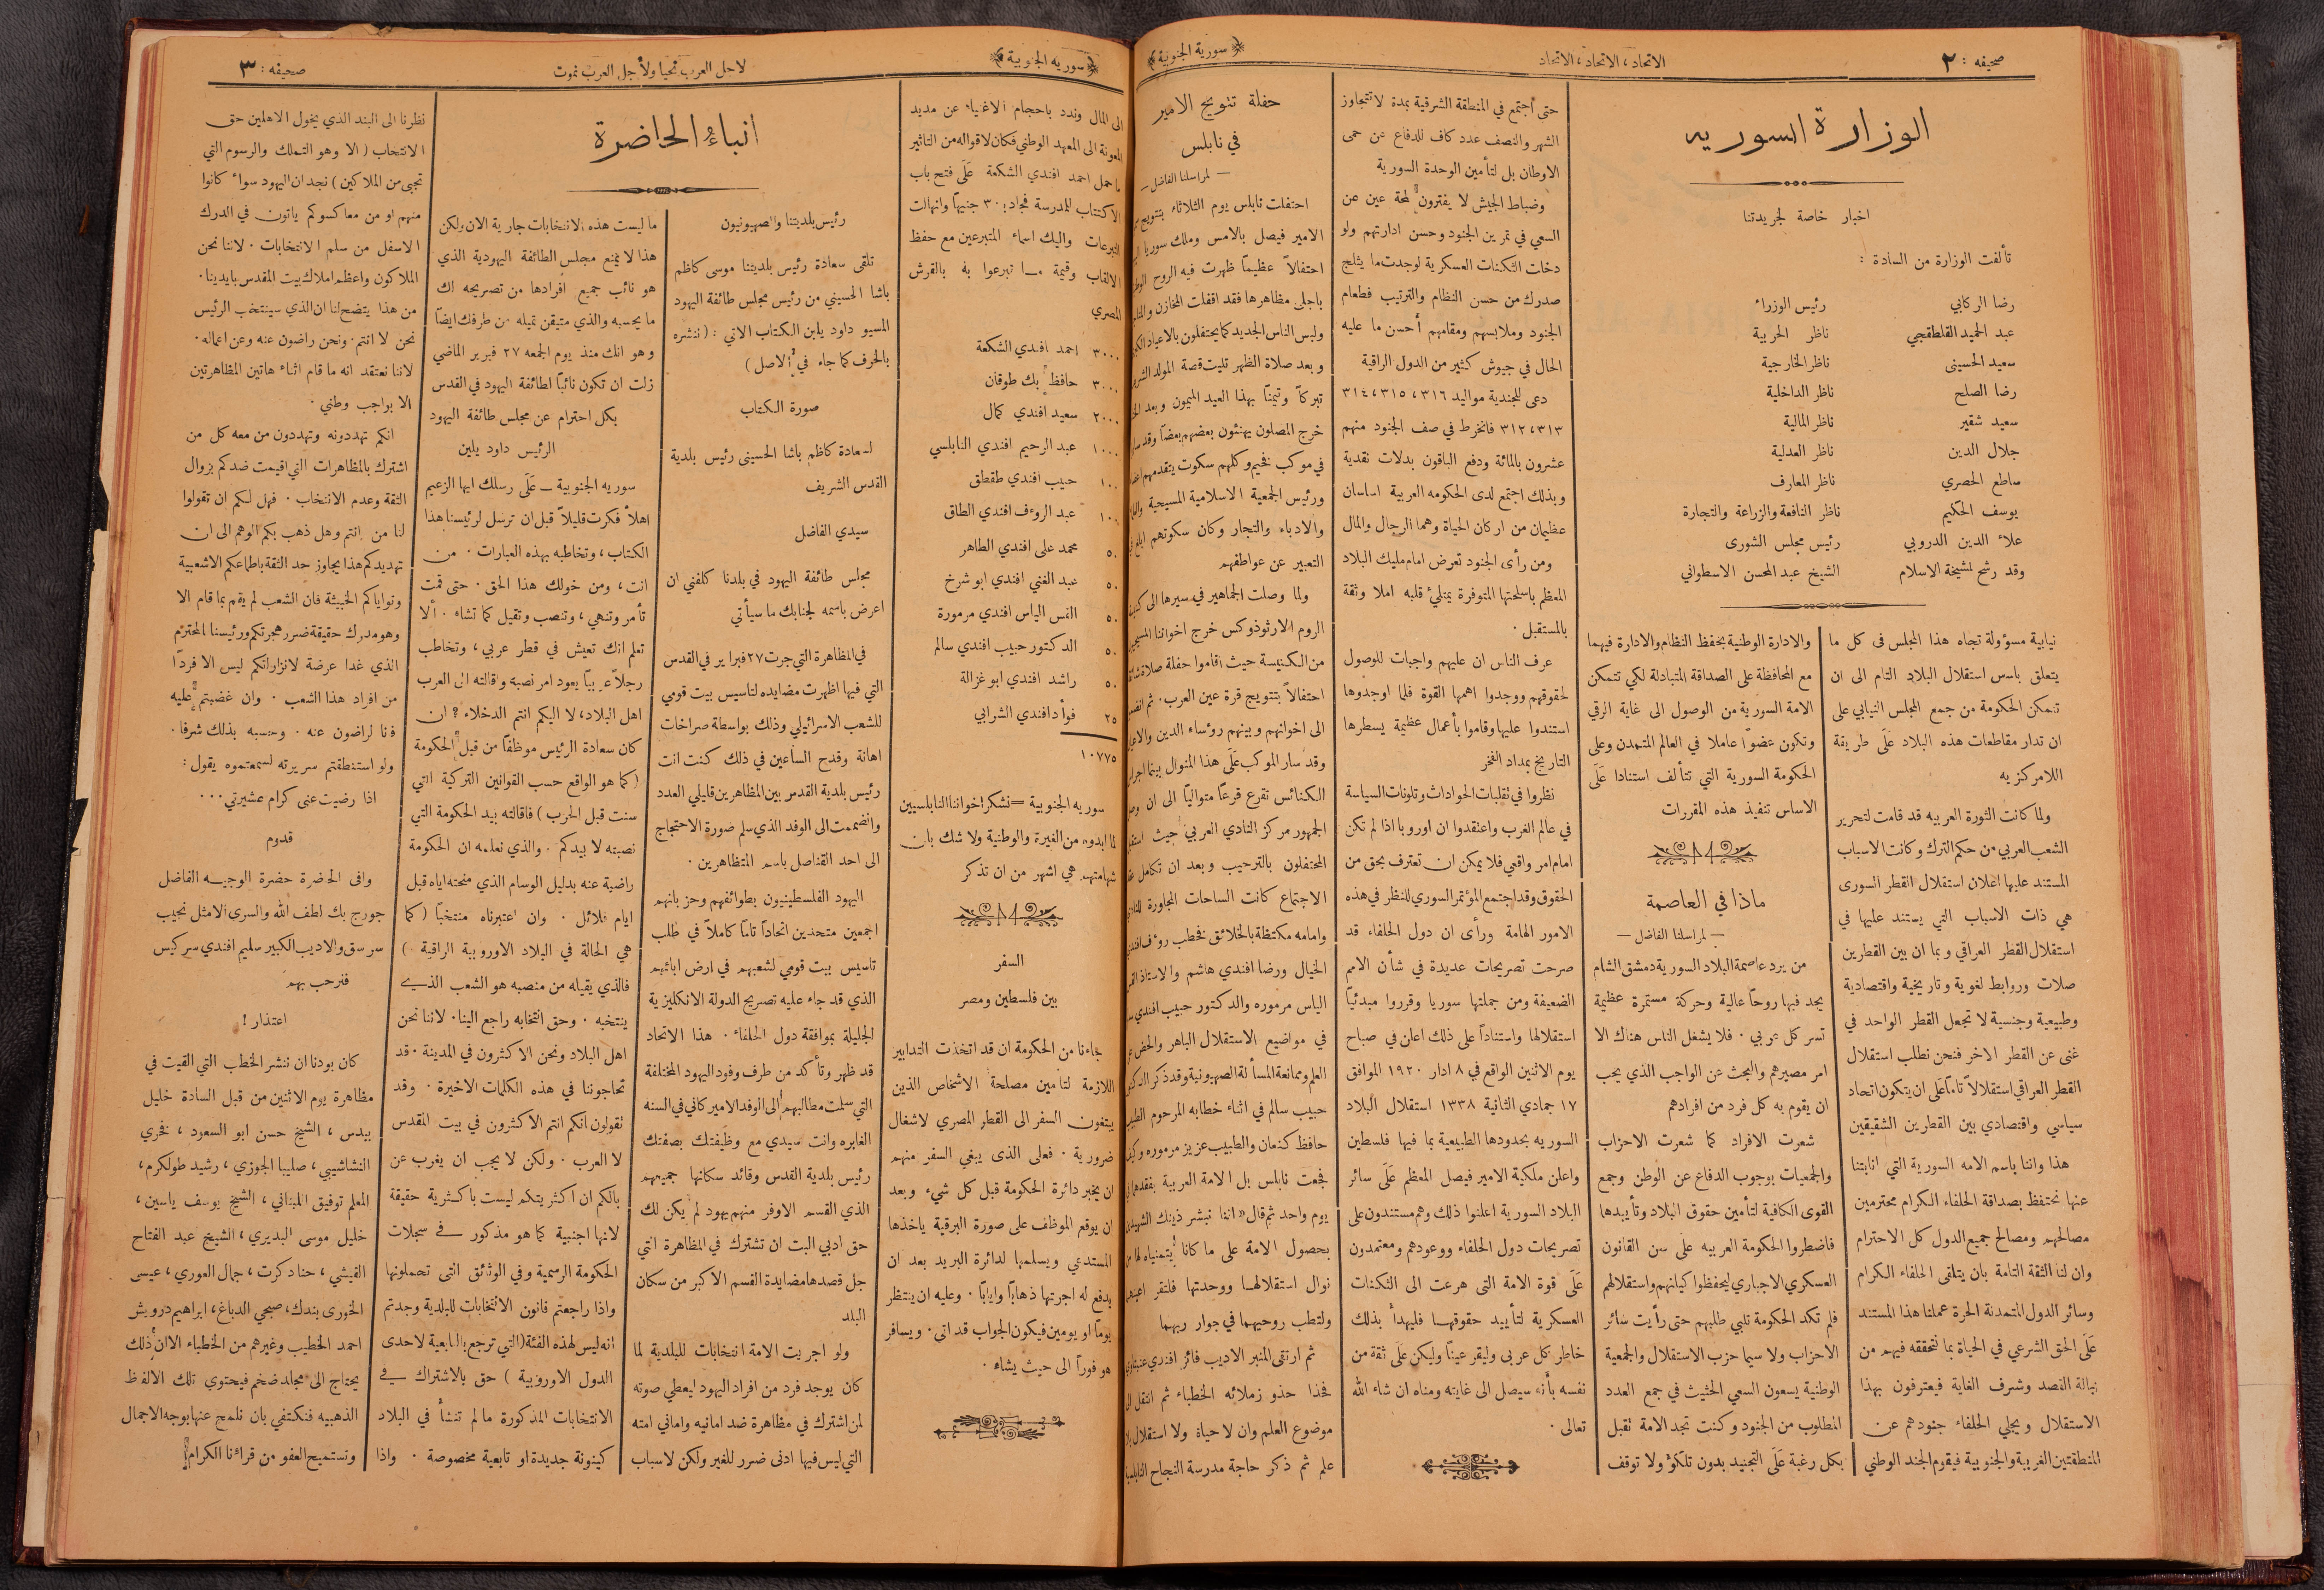 صحيفه : ٢
الاتحاد ، الاتحاد ، الاتحاد
﴿ سورية الجنوبية ﴾
الوزارة السوريه
اخبار خاصة لجريدتنا
تألفت الوزارة من السادة :
رضا الركابي رئيس الوزراء
عبد الحميد القلطقجي ناظر الحربية
سعيد الحسينى ناظر الخارجية
رضا الصلح ناظر الداخلية
سعيد شقير ناظر المالية
جلال الدين ناظر العدلية
ساطع الحصري ناظر المعارف
يوسف الحكيم ناظر النافعة والزراعة والتجارة
علاء الدين الدروبي رئيس مجلس الشورى
وقد رشح لمشيخة الاسلام الشيخ عبد المحسن الاسطواني
نيابية مسؤولة تجاه هذا المجلس فى كل ما
يتعلق باسس استقلال البلاد التام الى ان
تتمكن الحكومة من جمع المجلس النيابي على
ان تدار مقاطعات هذه البلاد عَلَى طريقة
اللامركزيه
ولما كانت الثورة العربيه قد قامت لتحرير
الشعب العربي من حكم الترك وكانت الاسباب
المستند عليها اعلان استقلال القطر السورى
هي ذات الاسباب التي يستند عليها في
استقلال القطر العراقي وبما ان بين القطرين
صلات وروابط لغوية وتاريخية واقتصادية
وطبيعية وجنسية لا تجعل القطر الواحد في
غنى عن القطر الاخر فنحن نطلب استقلال
القطر العراقي استقلالاً تاماً على ان يتكون اتحاد
سياسي واقتصادي بين القطرين الشقيقين
هذا واننا باسم الامه السورية التي انابتنا
عنها نحتفظ بصداقة الحلفاء الكرام محترمين
مصالحهم ومصالح جميع الدول كل الاحترام
وان لنا الثقة التامة بان يتلقى الحلفاء الكرام
وسائر الدول المتمدنة الحرة عملنا هذا المستند
عَلَى الحق الشرعي في الحياة بما نتحققه فيهم من
نبالة القصد وشرف الغاية فيعترفون بهذا
الاستقلال ويجلي الحلفاء جنودهم عن
المنطقتين الغربية والجنوبية فيقوم الجند الوطني
والادارة الوطنية بحفظ النظام والادارة فيهما
مع المحافظة على الصداقة المتبادلة لكي تتمكن
الامة السورية من الوصول الى غاية الرقي
وتكون عضوًا عاملا في العالم المتمدن وعلى
الحكومة السورية التي تتألف استنادا عَلَى
الاساس تنفيذ هذه المقررات
ماذا في العاصمة
— لمراسلنا الفاضل —
من يرد عاصمة البلاد السورية دمشق الشام
يجد فيها روحًا عالية وحركة مستمرة عظيمة
تسر كل عربي . فلا يشغل الناس هناك الا
امر مصيرهم والبحث عن الواجب الذي يجب
ان يقوم به كل فرد من افرادهم
شعرت الافراد كما شعرت الاحزاب
والجمعيات بوجوب الدفاع عن الوطن وجمع
القوى الكافية لتأمين حقوق البلاد وتأييدها
فاضطروا الحكومة العربيه على سن القانون
العسكري الاجباري ليحفظوا كيانهم واستقلالهم
فلم تكد الحكومة تلبي طلبهم حتى رأيت سائر
الاحزاب ولا سيما حزب الاستقلال والجمعية
الوطنية يسعون السعي الحثيث في جمع العدد
المطلوب من الجنود وكنت تجد الامة تقبل
بكل رغبة عَلَى التجنيد بدون تلكؤ ولا توقف
حتى اجتمع في المنطقة الشرقية بمدة لا تتجاوز
الشهر والنصف عدد كاف للدفاع عن حمى
الاوطان بل لتأمين الوحدة السورية
وضباط الجيش لا يفترون لمحة عين عن
السعي في تمرين الجنود وحسن ادارتهم ولو
دخلت الثكنات العسكرية لوجدت ما يثلج
صدرك من حسن النظام والترتيب فطعام
الجنود وملابسهم ومقامهم أحسن ما عليه
الحال في جيوش كثير من الدول الراقية
دعى للجندية مواليد ٣١٦ ، ٣١٥ ، ٣١٤
٣١٣ ، ٣١٢ فانخرط في صف الجنود منهم
عشرون بالمائة ودفع الباقون بدلات نقدية
وبذلك اجتمع لدى الحكومه العربية اساسان
عظيمان من اركان الحياة وهما الرجال والمال
ومن رأى الجنود تعرض امام مليك البلاد
المعظم باسلحتها المتوفرة يمتلئ قلبه املا وثقة
بالمستقبل .
عرف الناس ان عليهم واجبات للوصول
لحقوقهم ووجدوا اهمها القوة فلما اوجدوها
استندوا عليها وقاموا بأعمال عظيمة يسطرها
التاريخ بمداد الفخر
نظروا في تقلبات الحوادث وتلونات السياسة
في عالم الغرب واعتقدوا ان اوروبا اذا لم تكن
امام امر واقعي فلا يمكن ان تعترف بحق من
الحقوق وقد اجتمع المؤتمر السوري للنظر في هذه
الامور الهامة ورأى ان دول الحلفاء قد
صرحت تصريحات عديدة في شأن الامم
الضعيفة ومن جملتها سوريا وقرروا مبدئيًا
استقلالها واستناداً على ذلك اعلن في صباح
يوم الاثنين الواقع في ٨ ادار ١٩٢٠ الموافق
١٧ جمادي الثانية ١٣٣٨ استقلال البلاد
السوريه بحدودها الطبيعية بما فيها فلسطين
واعلن ملكية الامير فيصل المعظم عَلَى سائر
البلاد السورية اعلنوا ذلك وهم مستندون على
تصريحات دول الحلفاء ووعودهم ومعتمدون
عَلَى قوة الامة التى هرعت الى الثكنات
العسكرية لتأييد حقوقها فليهدأ بذلك
خاطر كل عربى وليقر عيناً وليكن على ثقة من
نفسه بأنه سيصل الى غايته ومناه ان شاء الله
تعالى .
حفلة تتويج الامير
في نابلس
— لمراسلنا الفاضل —
احتفلت نابلس يوم الثلاثاء بتتويج
الامير فيصل بالامس وملك سوريا
احتفالاً عظيماً ظهرت فيه الروح
باجلى مظاهرها فقد اقفلت المخازن
ولبس الناس الجديد كما يحتفلون بالاعياد
وبعد صلاة الظهر تليت قصة المولد
تبركاً وتيمنًا بهذا العيد الميمون وبعد
خرج المصلون يهنئون بعضهم بعضاً وقد
في موكب فخيم وكلهم سكوت يتقدمهم
ورئيس الجمعية الاسلامية المسيحية
والادباء والتجار وكان سكوتهم ابلغ
التعبير عن عواطفهم
ولما وصلت الجماهير في سيرها الى
الروم الارثوذوكس خرج اخواننا
من الكنيسة حيث اقاموا حفلة صلاة
احتفالاً بتتويج قرة عين العرب . ثم
الى اخوانهم وبينهم رؤساء الدين
وقد سار الموكب عَلَى هذا المنوال بينما
الكنائس تقرع قرعاً متواليًا الى ان
الجمهور مركز النادي العربي حيث
المحتفلون بالترحيب وبعد ان تكامل
الاجتماع كانت الساحات المجاورة
وامامه مكتظة بالخلائق فخطب رؤف
الخيال ورضا افندي هاشم والاستاذ
الياس مرموره والدكتور حبيب افندي
في مواضيع الاستقلال الباهر والحض
العلم وممانعة المسألة الصهيونية وقد ذكر
حبيب سالم في اثناء خطابه المرحوم
حافظ كنعان والطبيب عزيز مرموره
فجعت نابلس بل الامة العربية بفقدهما
يوم واحد ثم قال « اننا نبشر ذينك
بحصول الامة على ما كانا يتمنياه لها
نوال استقلالها ووحدتها فلتقر
ولتطب روحيهما في جوار ربهما
ثم ارتقى المنبر الاديب فائز افندي
فحذا حذو زملائه الخطباء ثم انتقل
موضوع العلم وان لا حياة ولا استقلال
علم ثم ذكر حاجة مدرسة النجاح
﴿ سوريه الجنوبية ﴾
لاجل العرب نحيا ولأجل العرب نموت
صحيفه : ٣
الى المال وندد باحجام الاغنياء عن مديد
المعونة الى المعهد الوطني فكان لاقواله من التاثير
ما حمل احمد افندي الشكعة عَلَى فتح باب
الاكتتاب للمدرسة فجاد بـ ٣٠ جنيهاً وانهالت
التبرعات واليك اسماء المتبرعين مع حفظ
الالقاب وقيمة ما تبرعوا به بالقرش
المصري
٣٠٠٠ احمد افندي الشكعة
٣٠٠٠ حافظ بك طوقان
٢٠٠٠ سعيد افندي كمال
١٠٠٠ عبد الرحيم افندي النابلسي
١٠٠ حبيب افندي طقطق
عبد الروءف افندي الطاق
٥٠ محمد على افندي الطاهر
٥٠ عبد الغني افندي ابو شرخ
٥٠ القس الياس افندي مرمورة
٥٠ الدكتور حبيب افندي سالم
٥٠ راشد افندي ابو غزالة
٢٥ فؤاد افندي الشرابي
١٠٧٧٥
سوريه الجنوبية = نشكر اخواننا النابلسيين
لما ابدوه من الغيرة والوطنية ولا شك بان
شهامتهم هي اشهر من ان تذكر
السفر
بين فلسطين ومصر
جاءنا من الحكومة ان قد اتخذت التدابير
اللازمة لتأمين مصلحة الاشخاص الذين
يبتغون السفر الى القطر المصري لاشغال
ضرورية . فعلى الذى يبغي السفر منهم
ان يخبر دائرة الحكومة قبل كل شيء وبعد
ان يوقع الموظف على صورة البرقية ياخذها
المستدعي ويسلمها لدائرة البريد بعد ان
يدفع له اجرتها ذهابًا وايابًا . وعليه ان ينتظر
يومًا او يومين فيكون الجواب قد اتى . ويسافر
هو فوراً الى حيث يشاء .
انباءُ الحاضرة
رئيس بلديتنا والصهيونيون
تلقى سعادة رئيس بلديتنا موسى كاظم
باشا الحسيني من رئيس مجلس طائفة اليهود
المسيو داود يلين الكتاب الاتي : ( ننشره
بالحرف كما جاء في الاصل )
صورة الكتاب
لسعادة كاظم باشا الحسينى رئيس بلدية
القدس الشريف
سيدي الفاضل
مجلس طائفة اليهود في بلدنا كلفني ان
اعرض باسمه لجنابك ما سيأتي
في المظاهرة التي جرت ٢٧ فبراير في القدس
التي فيها اظهرت مضايده لتاسيس بيت قومي
للشعب الاسرائيلي وذلك بواسطة صراخات
اهانة وقدح الساعين في ذلك كنت انت
رئيس بلدية القدس بين المظاهرين قايلي العدد
وانضممت الى الوفد الذي سلم صورة الاحتجاج
الى احد القناصل باسم المتظاهرين .
اليهود الفلسطينيون بطوائفهم وحزبانهم
اجمعين متحدين اتحاداً تامًا كاملاً في طلب
تاسيس بيت قومي لشعبهم في ارض ابائهم
الذي قد جاء عليه تصريح الدولة الانكليزية
الجليلة بموافقة دول الحلفاء . هذا الاتحاد
قد ظهر وتأكد من طرف وفود اليهود المختلفة
التي سلمت مطالبهم الى الوفد الاميركاني في السنه
الغابره وانت سيدي مع وظيفتك بصفتك
رئيس بلدية القدس وقائد سكانها جميعهم
الذي القسم الاوفر منهم يهود لم يكن لك
حق ادبي البت ان تشترك في المظاهرة التي
جل قصدها مضايدة القسم الاكبر من سكان
البلد
ولو اجريت الامة انتخابات للبلدية لما
كان يوجد فرد من افراد اليهود ليعطي صوته
لمن اشترك في مظاهرة ضد امانيه واماني امته
التي ليس فيها ادنى ضرر للغير ولكن لاسباب
ما ليست هذه الانتخابات جارية الان ولكن
هذا لا يمنع مجلس الطائفة اليهودية الذي
هو نائب جميع افرادها من تصريحه لك
ما يحسبه والذي متيقن تميله من طرفك ايضاً
وهو انك منذ يوم الجمعه ٢٧ فبرير الماضي
زلت ان تكون نائبًا لطائفة اليهود في القدس
بكل احترام عن مجلس طائفة اليهود
الرئيس داود يلين
سوريه الجنوبية ــ عَلَى رسلك ايها الزعيم
اهلاً فكرت قليلاً قبل ان ترسل لرئيسنا هذا
الكتاب ، وتخاطبه بهذه العبارات . من
انت ، ومن خولك هذا الحق . حتى قمت
تأمر وتنهي ، وتنصب وتقيل كما تشاء . ألا
تعلم انك تعيش في قطر عربي ، وتخاطب
رجلاً عربيًا يعود امر نصبه واقالته الى العرب
اهل البلاد ، لا اليكم انتم الدخلاء ؟ ان
كان سعادة الرئيس موظفًا من قبل الحكومة
( كما هو الواقع حسب القوانين التركية التي
سنت قبل الحرب ) فاقالته بيد الحكومة التي
نصبته لا بيدكم . والذي نعلمه ان الحكومة
راضية عنه بدليل الوسام الذي منحته اياه قبل
ايام قلائل . وان اعتبرناه منتخبًا ( كما
هي الحالة في البلاد الاوروبية الراقية )
فالذي يقيله من منصبه هو الشعب الذي
ينتخبه . وحق انتخابه راجع الينا . لاننا نحن
اهل البلاد ونحن الاكثرون في المدينة . قد
تحاجوننا في هذه الكلمات الاخيرة . وقد
تقولون انكم انتم الاكثرون في بيت المقدس
لا العرب . ولكن لا يجب ان يغرب عن
بالكم ان اكثريتكم ليست باكثرية حقيقة
لانها اجنبية كما هو مذكور في سجلات
الحكومة الرسمية وفي الوثائق التى تحملونها
واذا راجعتم قانون الانتخابات للبلدية وجدتم
انه ليس لهذه الفئة ( التي ترجع بالتابعية لاحدى
الدول الاوروبية ) حق بالاشتراك في
الانتخابات المذكورة ما لم تنشأ في البلاد
كينونة جديدة او تابعية مخصوصة . واذا
نظرنا الى البند الذي يخول الاهلين حق
الانتخاب ( الا وهو التملك والرسوم التي
تجبى من الملاكين ) نجد ان اليهود سواء كانوا
منهم او من معاكسوكم ياتون في الدرك
الاسفل من سلم الانتخابات . لاننا نحن
الملاكون واعظم املاك بيت المقدس بايدينا .
من هذا يتضح لنا ان الذي سينتخب الرئيس
نحن لا انتم . ونحن راضون عنه وعن اعماله .
لاننا نعتقد انه ما قام اثناء هاتين المظاهرتين
الا بواجب وطني .
انكم تهددونه وتهددون من معه كل من
اشترك بالمظاهرات التي اقيمت ضدكم بزوال
الثقة وعدم الانتخاب . فهل لكم ان تقولوا
لنا من انتم وهل ذهب بكم الوهم الى ان
تهديدكم هذا يجاوز حد الثقة باطماعكم الاشعبية
ونواياكم الخبيثة فان الشعب لم يقم بما قام الا
وهو مدرك حقيقة ضرر هجرتكم ورئيسنا المحترم
الذي غدا عرضة لانزاراتكم ليس الا فردًا
من افراد هذا الشعب . وان غضبتم عليه
فانا لراضون عنه . وحسبه بذلك شرفا .
ولو استنطقتم سريرته لسمعتموه يقول :
اذا رضيت عنى كرام عشيرتي . . .
قدوم
وافى الحاضرة حضرة الوجيه الفاضل
جورج بك لطف الله والسري الامثل نجيب
سرسق والاديب الكبير سليم افندي سركيس
فنرحب بهم
اعتذار !
كان بودنا ان ننشر الخطب التي القيت في
مظاهرة يوم الاثنين من قبل السادة خليل
بيدس ، الشيخ حسن ابو السعود ، فخري
النشاشيبي ، صليبا الجوزي ، رشيد طولكرم ،
المعلم توفيق اللبناني ، الشيخ يوسف ياسين ،
خليل موسى البديري ، الشيخ عبد الفتاح
القيشي ، حنا دكرت ، جمال العوري ، عيسى
الخورى بندك ، صبحي الدباغ ، ابراهيم درويش
احمد الخطيب وغيرهم من الخطباء الا ان ذلك
يحتاج الى مجلد ضخم فيحتوي تلك الالفظ
الذهبيه فنكتفي بان نلمح عنها بوجه الاجمال
ونستميح العفو من قراءنا الكرام